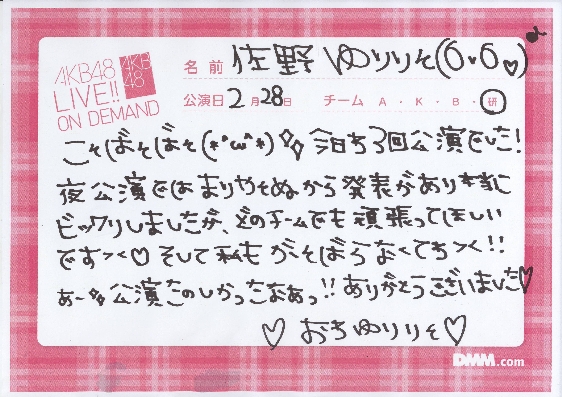 AKB48
LIVE!!
ON DEMAND
AKB
48
名前 佐野 ゆりりそ(ŏ、ŏ♥)♪
公演日 2月28日 チーム A・K・B・研
こそばそばそ(*^ω^*)✧✧今日も3回公演でした!
夜公演ではまりやそぬから発表があり本当に
ビックリしましたが、どのチームでも頑張ってほしい
です><♡そして私もがそばらなくてち><!!
あー夕公演たのしかったなあっ!!ありがとうございました♥
♡おちゆりりそ♡
DMM.com